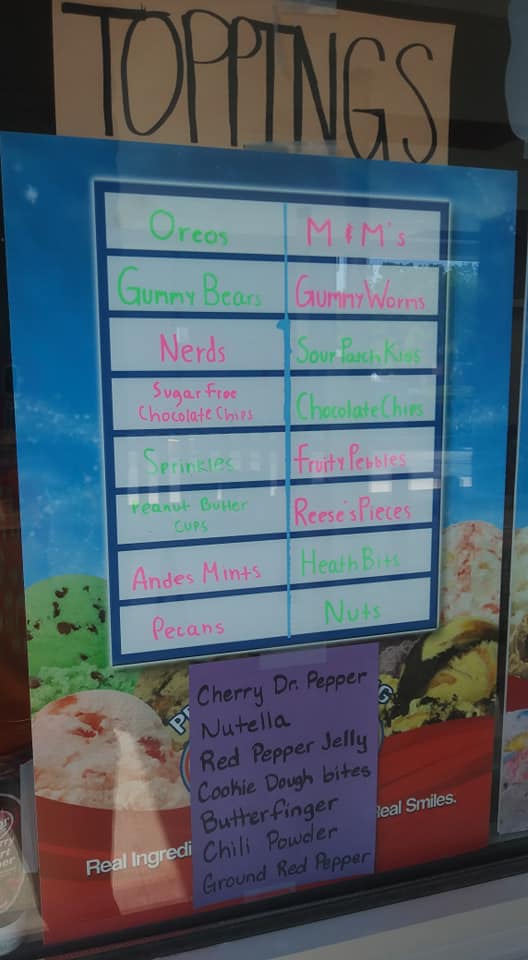 TOPPINGS
Oreos
M & M's
Gummy Bears
Gummy Worms
Nerds
Sour Patch Kids
Sugar Free
Chocolate Chips
Chocolate Chips
Sprinkles
Fruity Pebbles
Peanut Butter
Cups
Reese's Pieces
Andes Mints
Heath Bits
Pecans
Nuts
Cherry Dr. Pepper
Nutella
Red Pepper Jelly
Cookie Dough bites
Butterfinger
Chili Powder
Ground Red Pepper
Real Smiles.
Real Ingredi